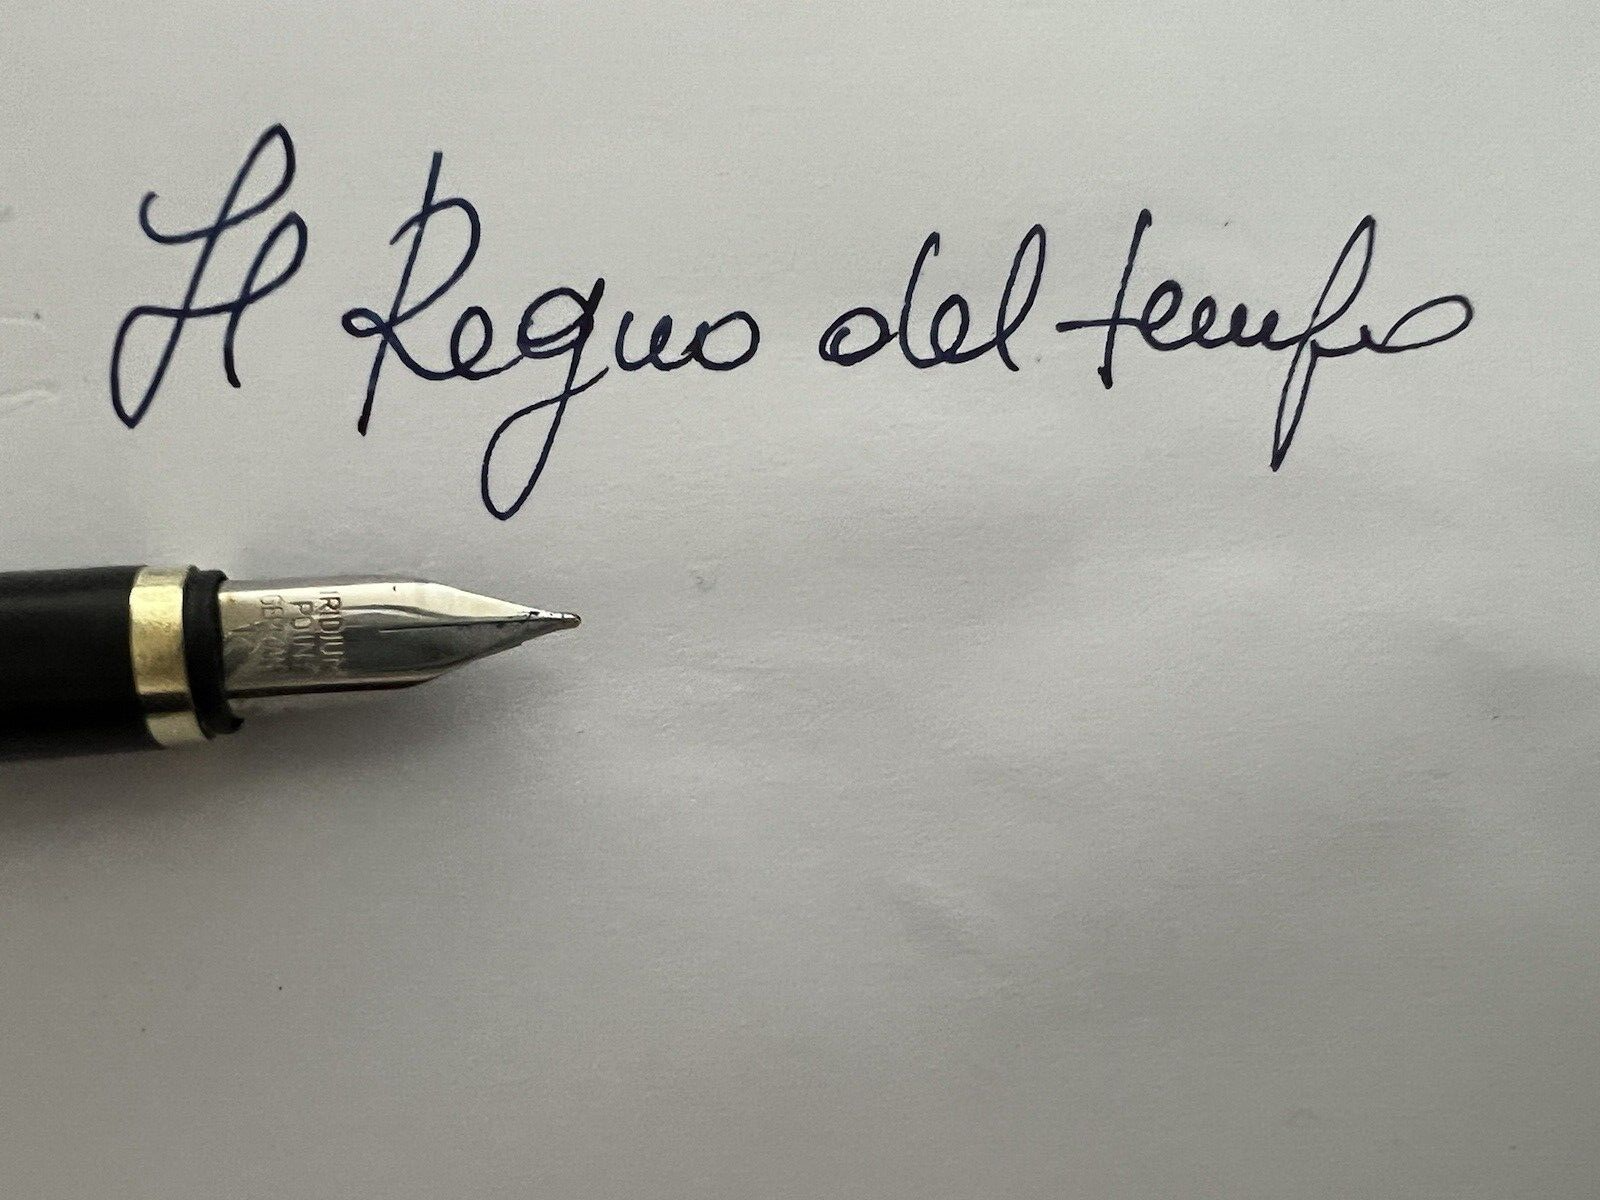 Il Regno del tempo
IRIDIUM
POINT
GERMANY